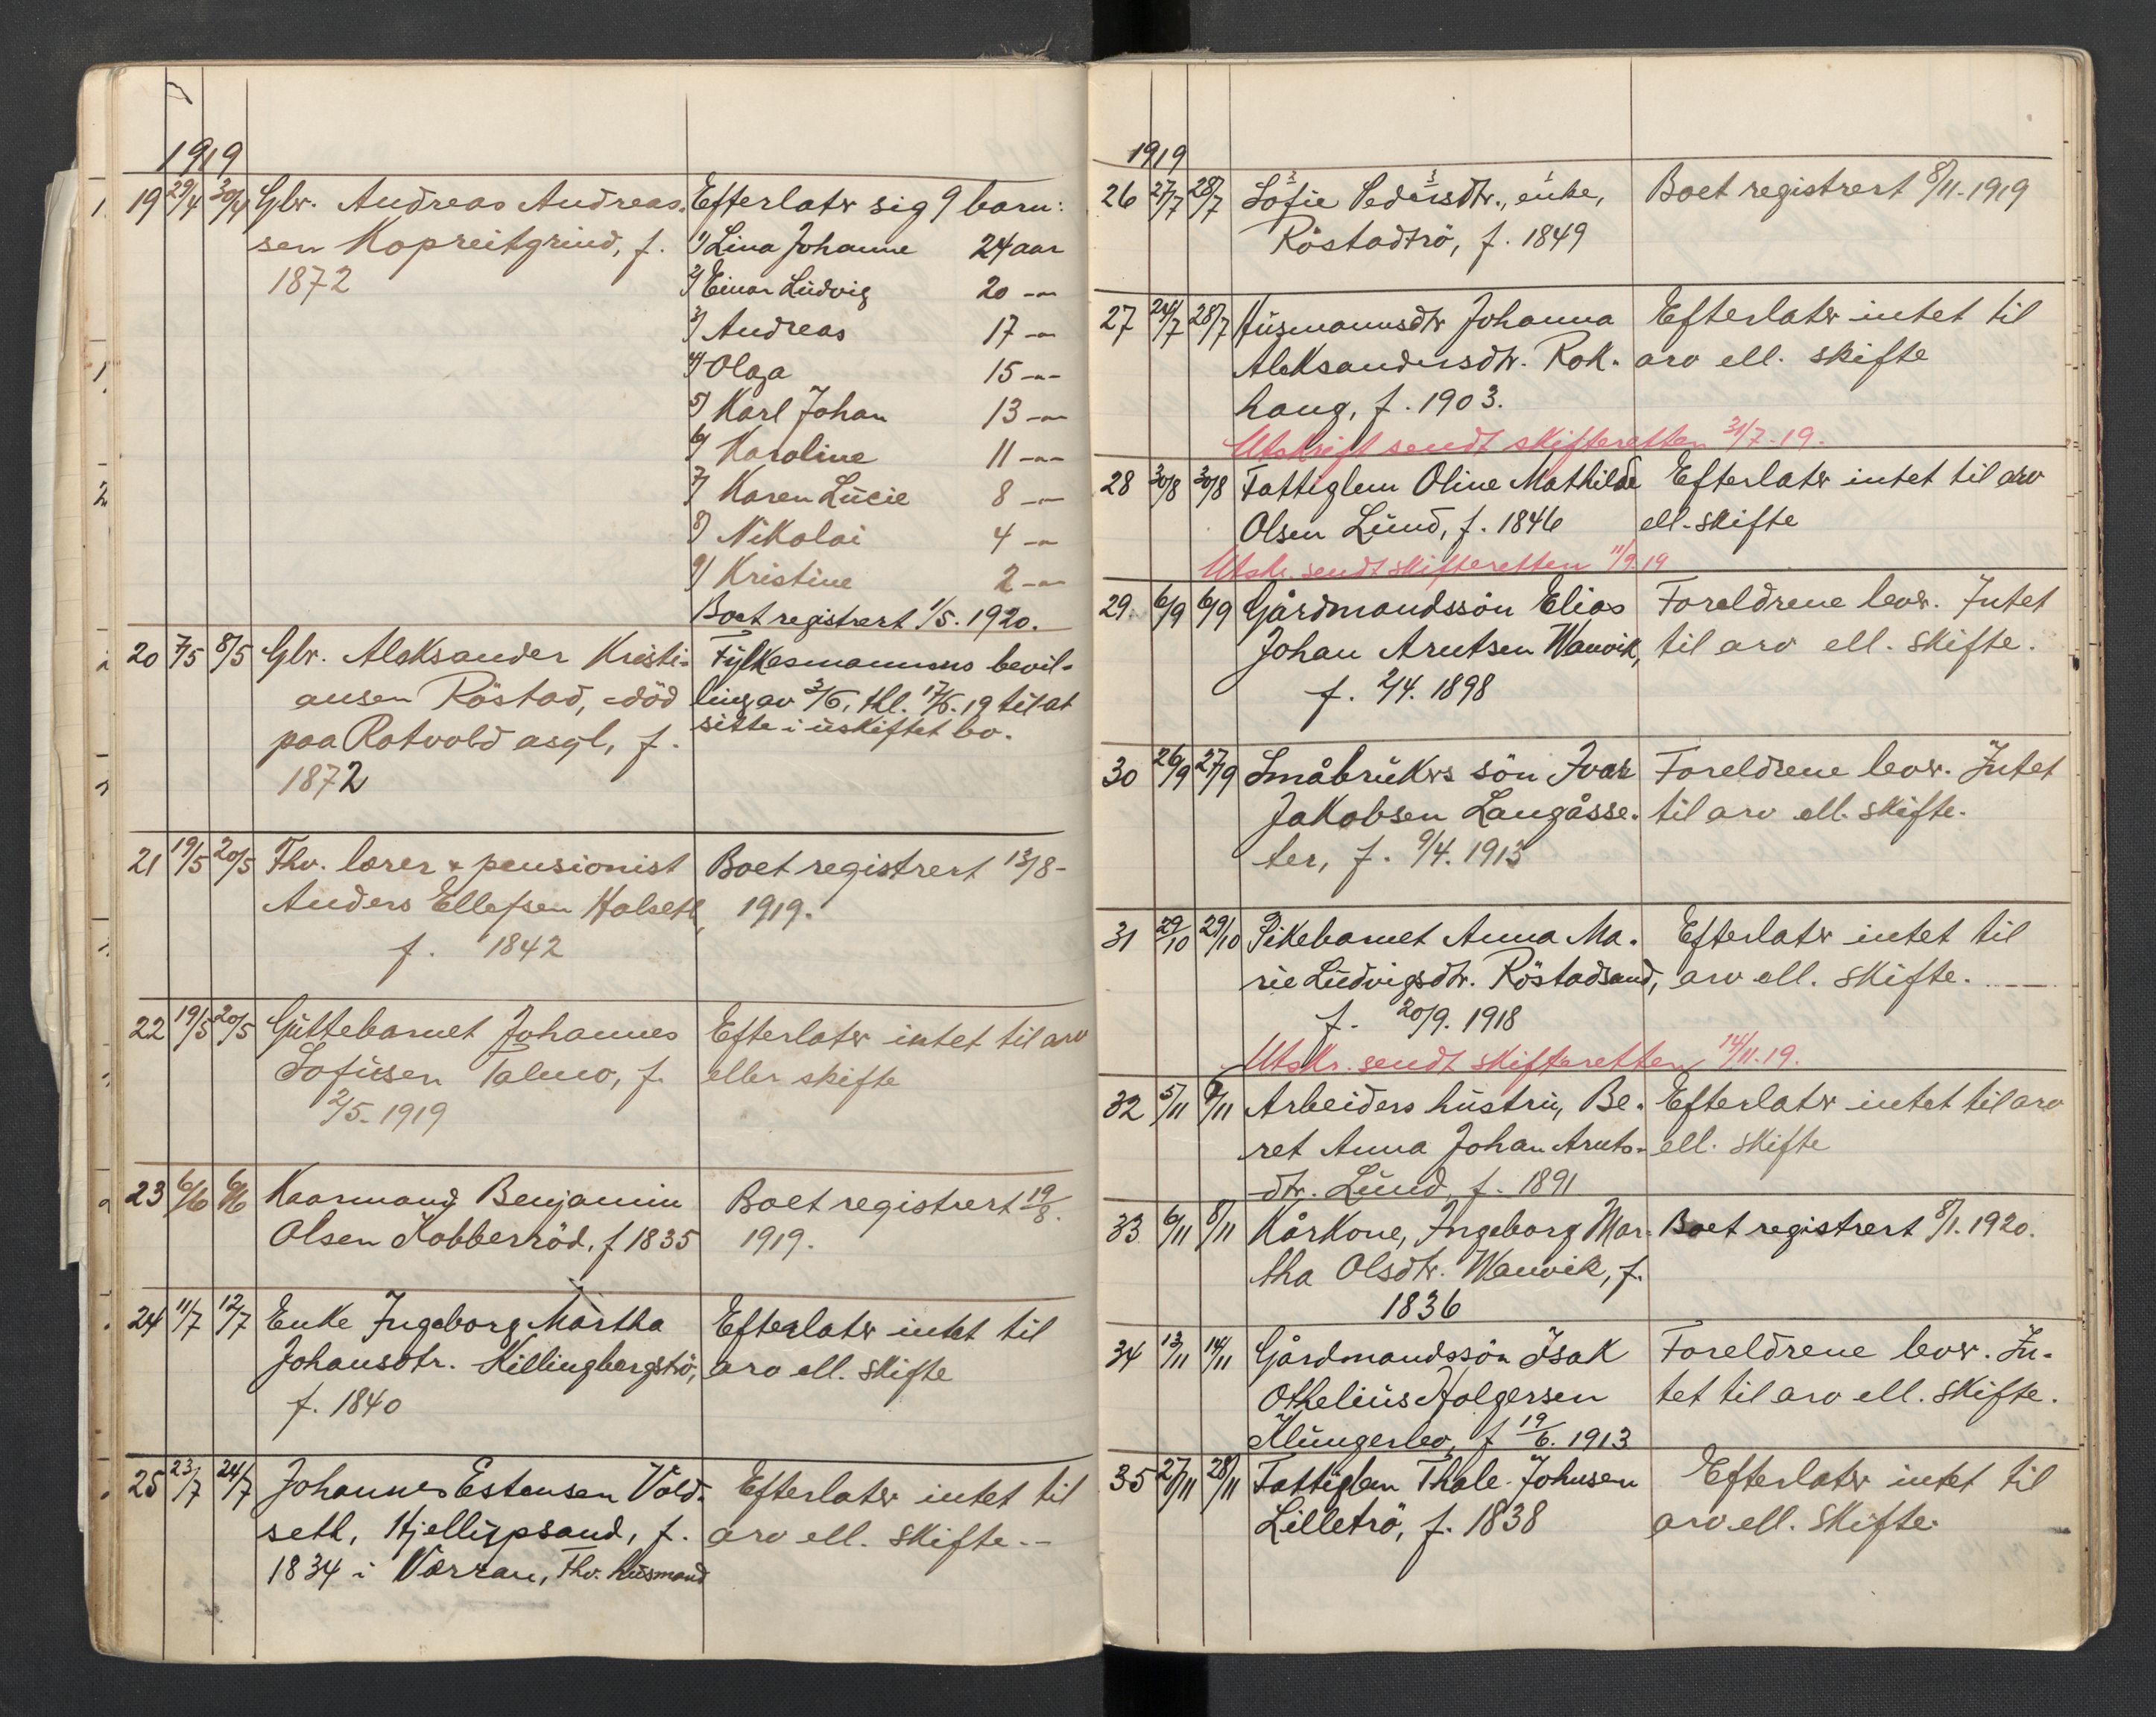 1919
19 29/4 30/4 Gbr. Andreas Andreas- Efterlater sig 9 barn:
sen Kopreitgrind, f. 1) Lina Johanne 24 aar
1872 2) Einar Ludvig 20 -"-
3) Andreas 17 -"-
4) Olaga 15 -"-
5) Karl Johan 13 -"-
6) Karoline 11 -"-
7) Karen Lucie 8 -"-
8) Nikolai 4 -"-
9) Kristine 2 -"-
Boet registrert 1/5. 1920.
20 7/5 8/5 Gbr. Aleksander Kristi- Fylkesmannens bevil-
ansen Röstad, död ling av 3/6, thl. 17/6. 19 til at
paa Rotvold asyl, f. sitte i uskiftet bo.
1872
21 19/5 20/5 Fhv. lærer & pensionist Boet registrert 13/8-
Anders Ellefsen Halseth, 1919.
f. 1842
22 19/5 20/5 Guttebarnet Johannes Efterlater intet til arv
Sofusen Talmo, f. eller skifte
2/5. 1919
23 6/6 6/6 Kaarmand Benjamin Boet registrert 19/8.
Olsen Kobberröd, f 1835 1919.
24 11/7 12/7 Enke Ingeborg Martha Efterlater intet til
Johansdtr. Killingbergtrö, arv ell. skifte
f. 1840
25 23/7 24/7 Johannes Estensen Vold- Efterlater intet til
seth, Hjellupsand, f. arv ell. skifte.-
1834 i Værran, Fhv. husmand
1919
26 27/7 28/7 Sofie Pedersdtr., enke, Boet registrert 8/11-1919
Röstadtrö, f. 1849
27 24/7 28/7 Husmannsdtr Johanna Efterlater intet til
Aleksandersdtr. Rok- arv ell. skifte
haug, f. 1903.
Utskrift sendt skifteretten 31/7-19.
28 30/8 30/8 Fattiglem Oline Mathilde Efterlater intet til arv
Olsen Lund, f. 1846 ell. skifte
Utskr. sendt skifteretten 11/9.19
29. 6/9 6/9 Gårdmandssön Elias Foreldrene lever. Intet
Johan Arntsen Wanvik, til arv ell. skifte.
f. 2/4. 1898
30 26/9 27/9 Småbrukers sön Ivar Foreldrene lever. Intet
Jakobsen Langåsse- til arv ell. skifte.
ter, f. 9/4. 1913
31 29/10 29/10 Pikebarnet Anna Ma- Efterlater intet til
rie Ludvigsdtr. Röstadsand, arv ell. skifte.
f. 20/9. 1918
Utskr. sendt skifteretten 14/11.19.
32 5/11 /11 Arbeiders hustru, Be- Efterlater intet til arv
ret Anna Johan Arnts- ell. skifte
dtr. Lund, f. 1891
33 6/11 8/11 Kårkone, Ingeborg Mar- Boet registrert 8/1. 1920.
tha Olsdtr. Wanvik, f.
1836
34 13/11 14/11 Gårdmandssön Isak Foreldrene lever. In-
Othelius Holgersen tet til arv ell. skifte.
Klungerbo, f 19/6. 1913
35 27/11 28/11 Fattiglem Thale Johnsen Efterlater intet til
Lilletrö, f. 1838 arv ell. skifte.